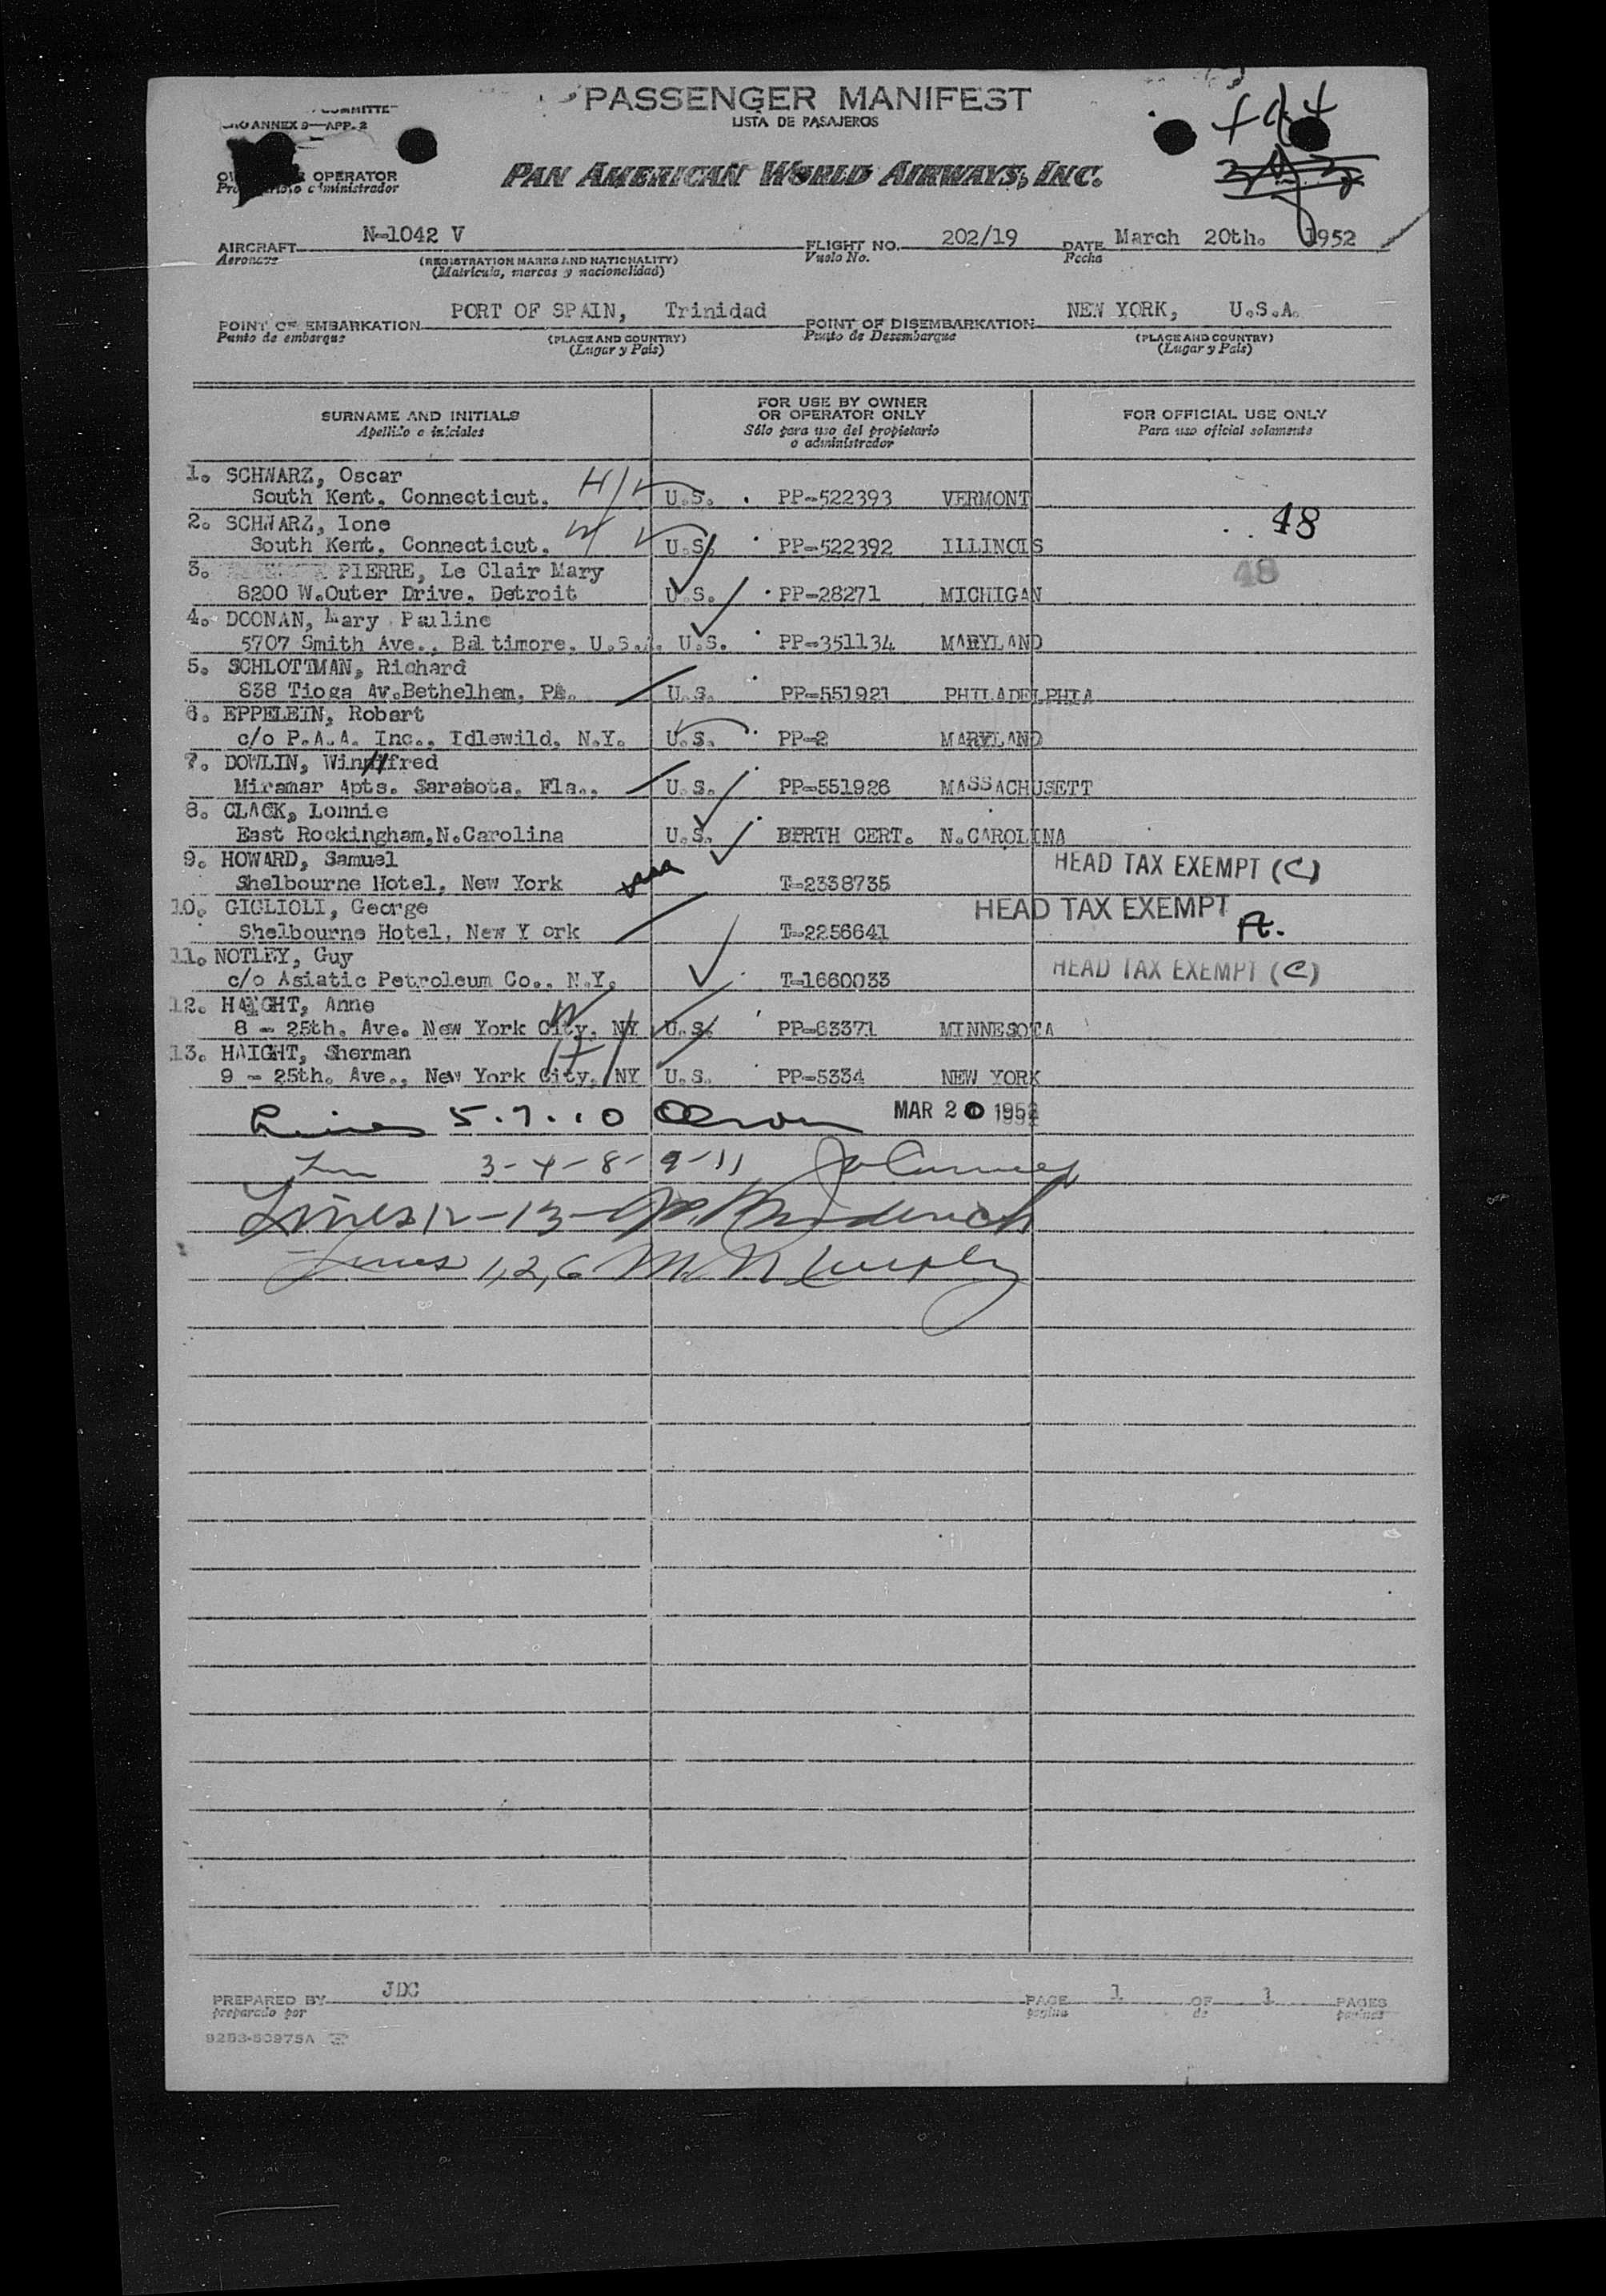 PASSENGER MANIFEST
LISTA DE PASAJEROS
ANNEX 9—APP. 2
OPERATOR
PAN AMERICAN WORLD AIRWAYS, INC.
AIRCRAFT N-1042 V FLIGHT NO. 202/19 DATE March 20th. 1952
Aeronave (REGISTRATION MARKS AND NATIONALITY) Vuelo No. Fecha
(Matrícula, marcas y nacionalidad)
POINT OF EMBARKATION PORT OF SPAIN, Trinidad POINT OF DISEMBARKATION NEW YORK, U.S.A.
Punto de embarque (PLACE AND COUNTRY) Punto de Desembarque (PLACE AND COUNTRY)
(Lugar y País) (Lugar y País)
SURNAME AND INITIALS FOR USE BY OWNER OR OPERATOR ONLY FOR OFFICIAL USE ONLY
Apellido e iniciales Sólo para uso del propietario o administrador Para uso oficial solamente
1. SCHWARZ, Oscar
South Kent, Connecticut. H/ U.S. PP-522393 VERMONT
2. SCHWARZ, Ione 48
South Kent, Connecticut. W U.S. PP-522392 ILLINOIS
3. PIERRE, Le Clair Mary 48
8200 W.Outer Drive, Detroit U.S. PP-28271 MICHIGAN
4. DOONAN, Mary Pauline
5707 Smith Ave., Baltimore, U.S.A. U.S. PP-351134 MARYLAND
5. SCHLOTTMAN, Richard
838 Tioga Av.Bethelhem, PA. U.S. PP-551921 PHILADELPHIA
6. EPPELEIN, Robert
c/o P.A.A. Inc., Idlewild, N.Y. U.S. PP-2 MARYLAND
7. DOWLIN, Winnifred
Miramar Apts. Sarasota, Fla., U.S. PP-551926 MASSACHUSETT
8. CLACK, Lonnie
East Rockingham,N.Carolina U.S. BIRTH CERT. N.CAROLINA
9. HOWARD, Samuel HEAD TAX EXEMPT (C)
Shelbourne Hotel, New York T-2338735
10. GIGLIOLI, George HEAD TAX EXEMPT
Shelbourne Hotel, New Y ork T-2256641 A.
11. NOTLEY, Guy
c/o Asiatic Petroleum Co., N.Y. T-1660033 HEAD TAX EXEMPT (C)
12. HAIGHT, Anne
8 - 25th. Ave. New York City, NY W U.S. PP-63371 MINNESOTA
13. HAIGHT, Sherman
9 - 25th. Ave., New York City, NY H/ U.S. PP-5334 NEW YORK
Lines 5.7.10 MAR 20 1952
3-4-8-9-11
Lines 12-13
Lines 1,2,6 M. Murphy
PREPARED BY JDC PAGE 1 OF 1 PAGES
preparado por página de páginas